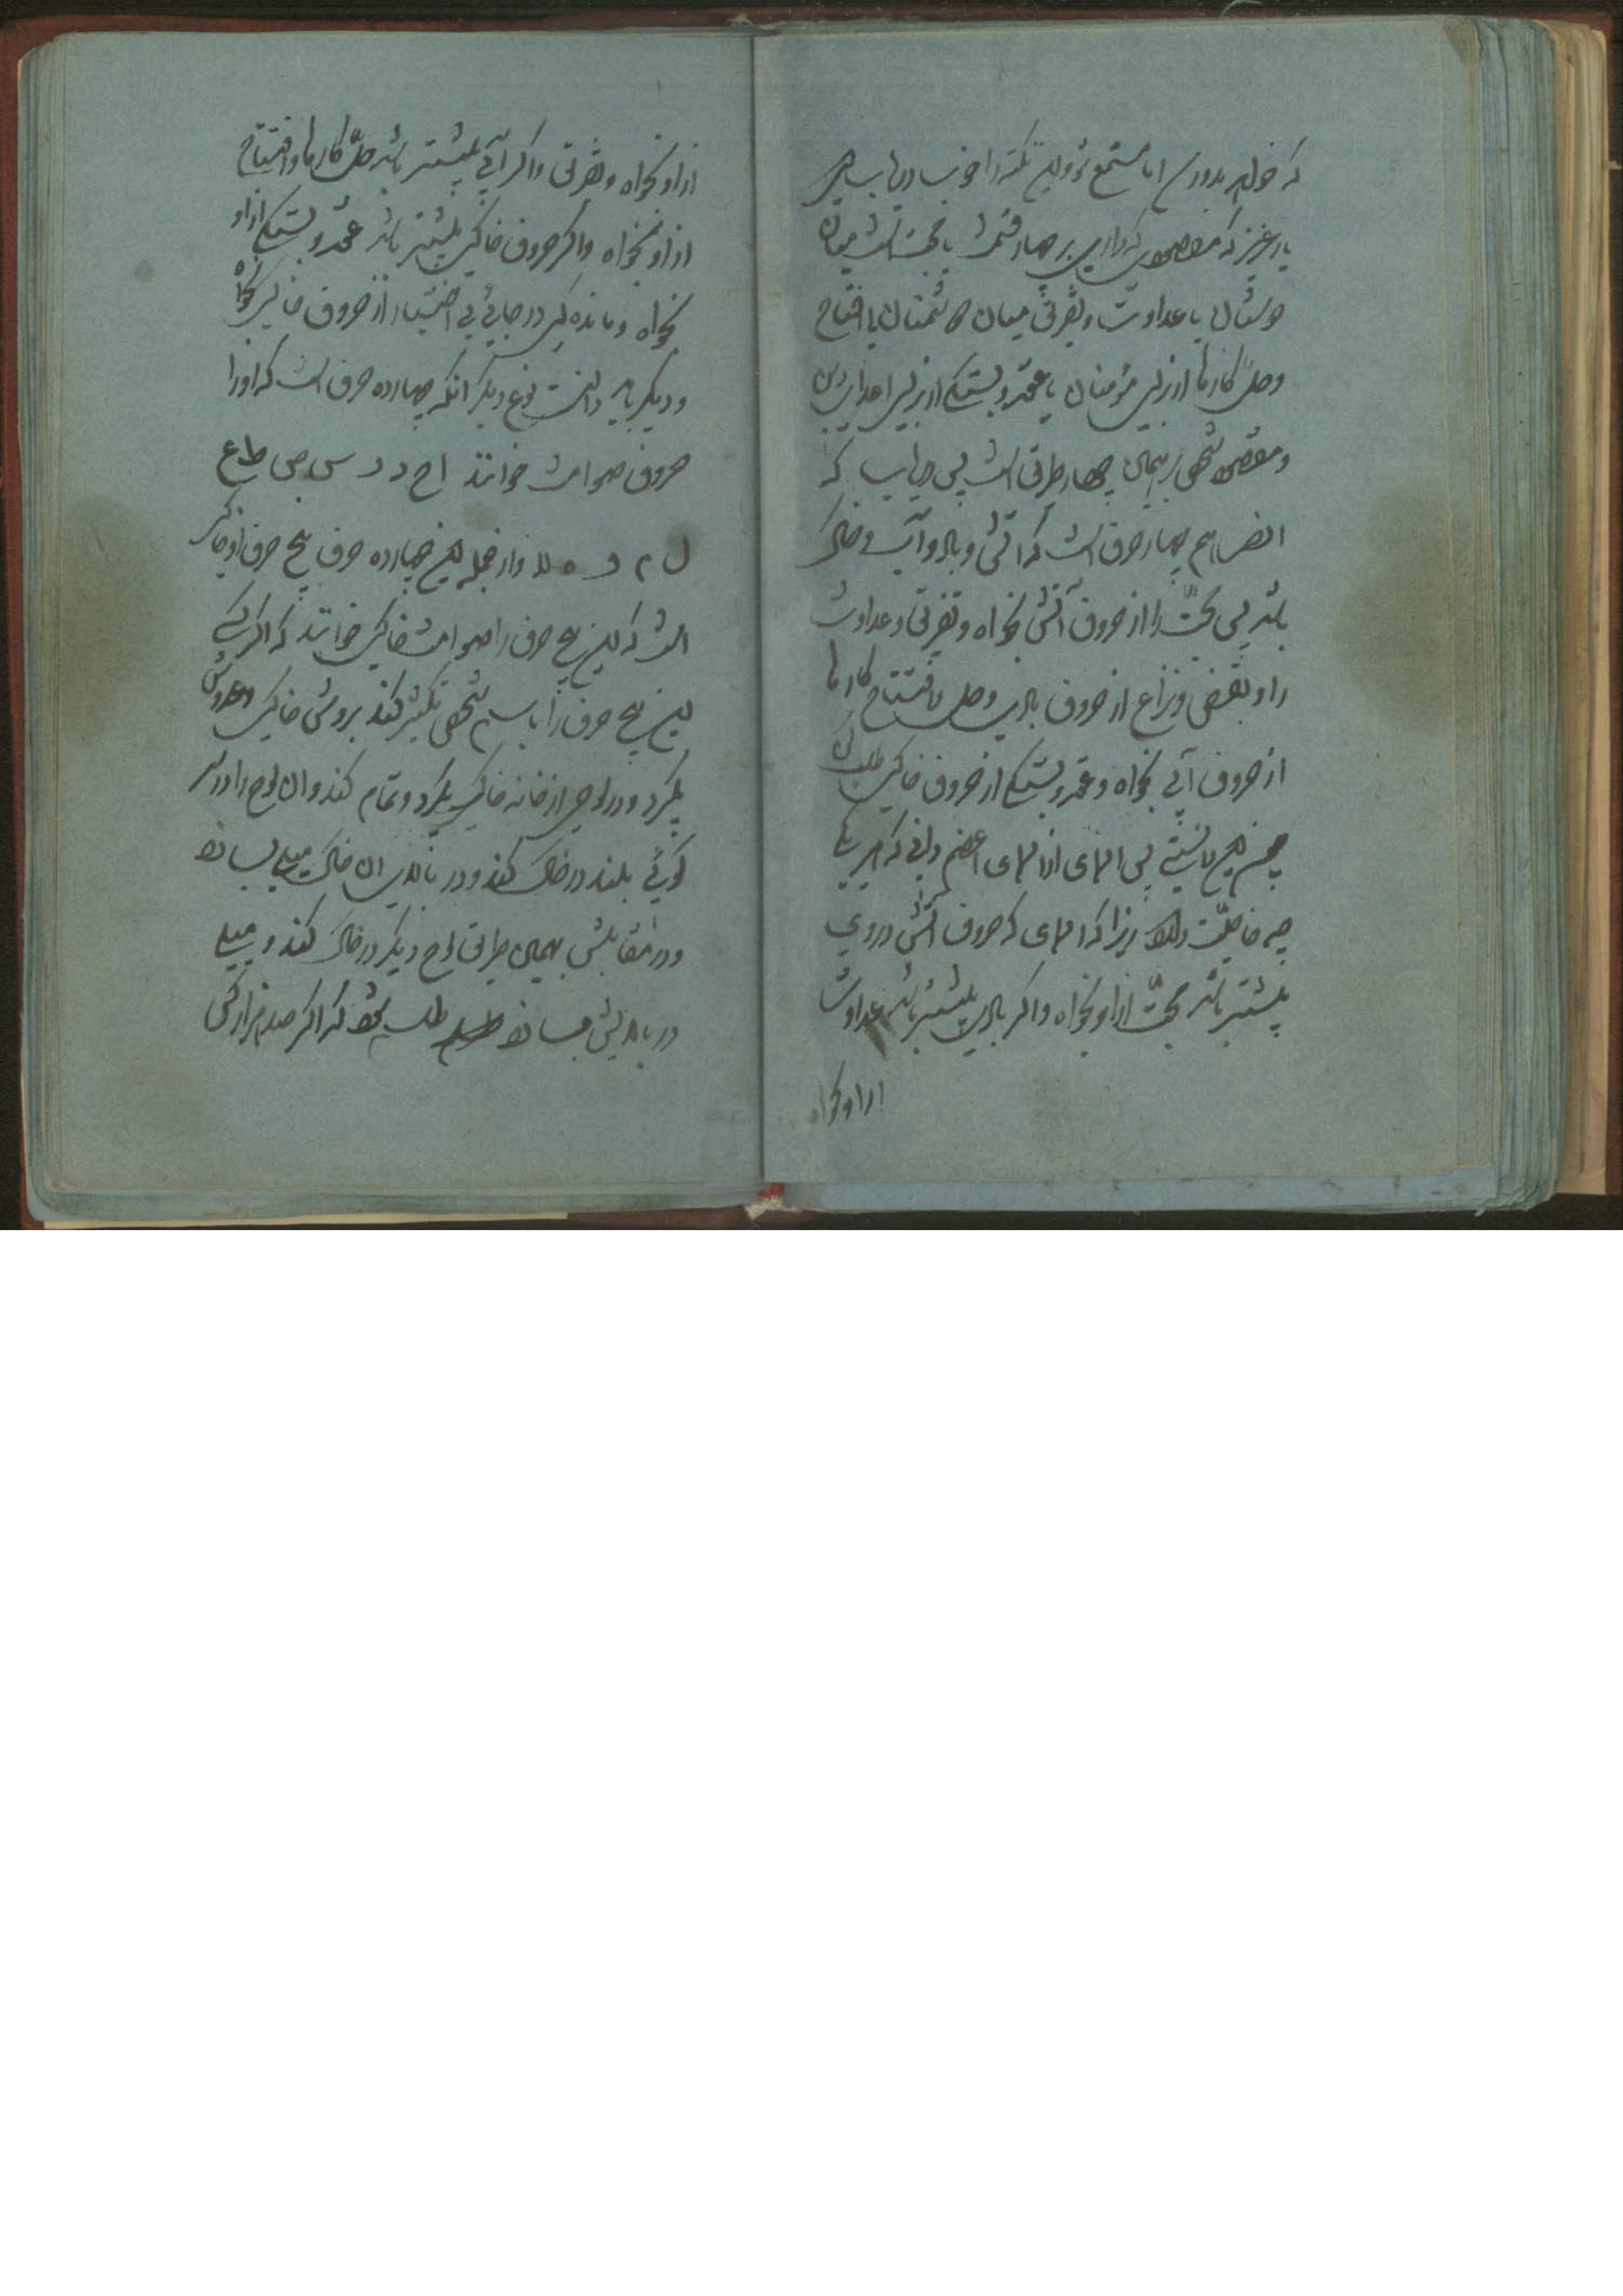 که خواهد بدورسد اما مستمع شو و این نکته را خوب دریاب
یار عزیز که مقصودی که داری بر چهار قسمت یا محبت است میان
دوستان یا عداوت و تفریق میان دشمنان یا افتتاح
وحل کارها از برای مؤمنان یا عقد و بستگی از برای اعدای دین
و مقصود شخص بر همان چهار طریق است پس دریاب که
هم چهار حرف است که آتشی و بادی و آبی و خاکی
باشد پس محبت را از حروف آتشی بخواه و تفریق و عداوت
را و بغض و نزاع از حروف بادی وحل و افتتاح کارها
از حروف آبی بخواه و عقد و بستگی از حروف خاکی طلب کن
چون این دانستی پس اسمای از اسمای اعظم دانی که هر یک
چه خاصیت دارد زیرا که اسمای که حروف آتشی دروی
بیشتر باشد محبت ازو بخواه و اگر بادی بیشتر باشد عداوت
ازاو بخواه
ازاو بخواه و تفریق و اگر آبی بیشتر باشد حل کارها و افتتاح
ازاو بخواه و اگر حروف خاکی بیشتر باشد عقد و بستگی ازاو
بخواه و مانده کی در جایی بی اختیار از حروف خاکی بخواه
و دیگر باید دانست نوع دیگر آنکه چهارده حرف است که اورا
حروف صوامت خوانند ا ح د ر س ص ط ع
ل م و ه لا واز جمله این چهارده حرف پنج حرف او خاکی
است که این پنج حرف را صوامت خاکی خوانند که اگر کسی
این پنج حرف را با اسم شخص تکسیر کند بروش خاکی
بگیرد و در لوحی از خانه خاکی بگیرد و تمام کند و آن لوح را در سر
کوئی بلند در خاک کند و در بالای آن خاک میلی بسازد
و در مقابلش بهمان طریق لوح دیگر در خاک کند و میلی
در بالایش بسازد طلسم شود که اگر صد هزار کس